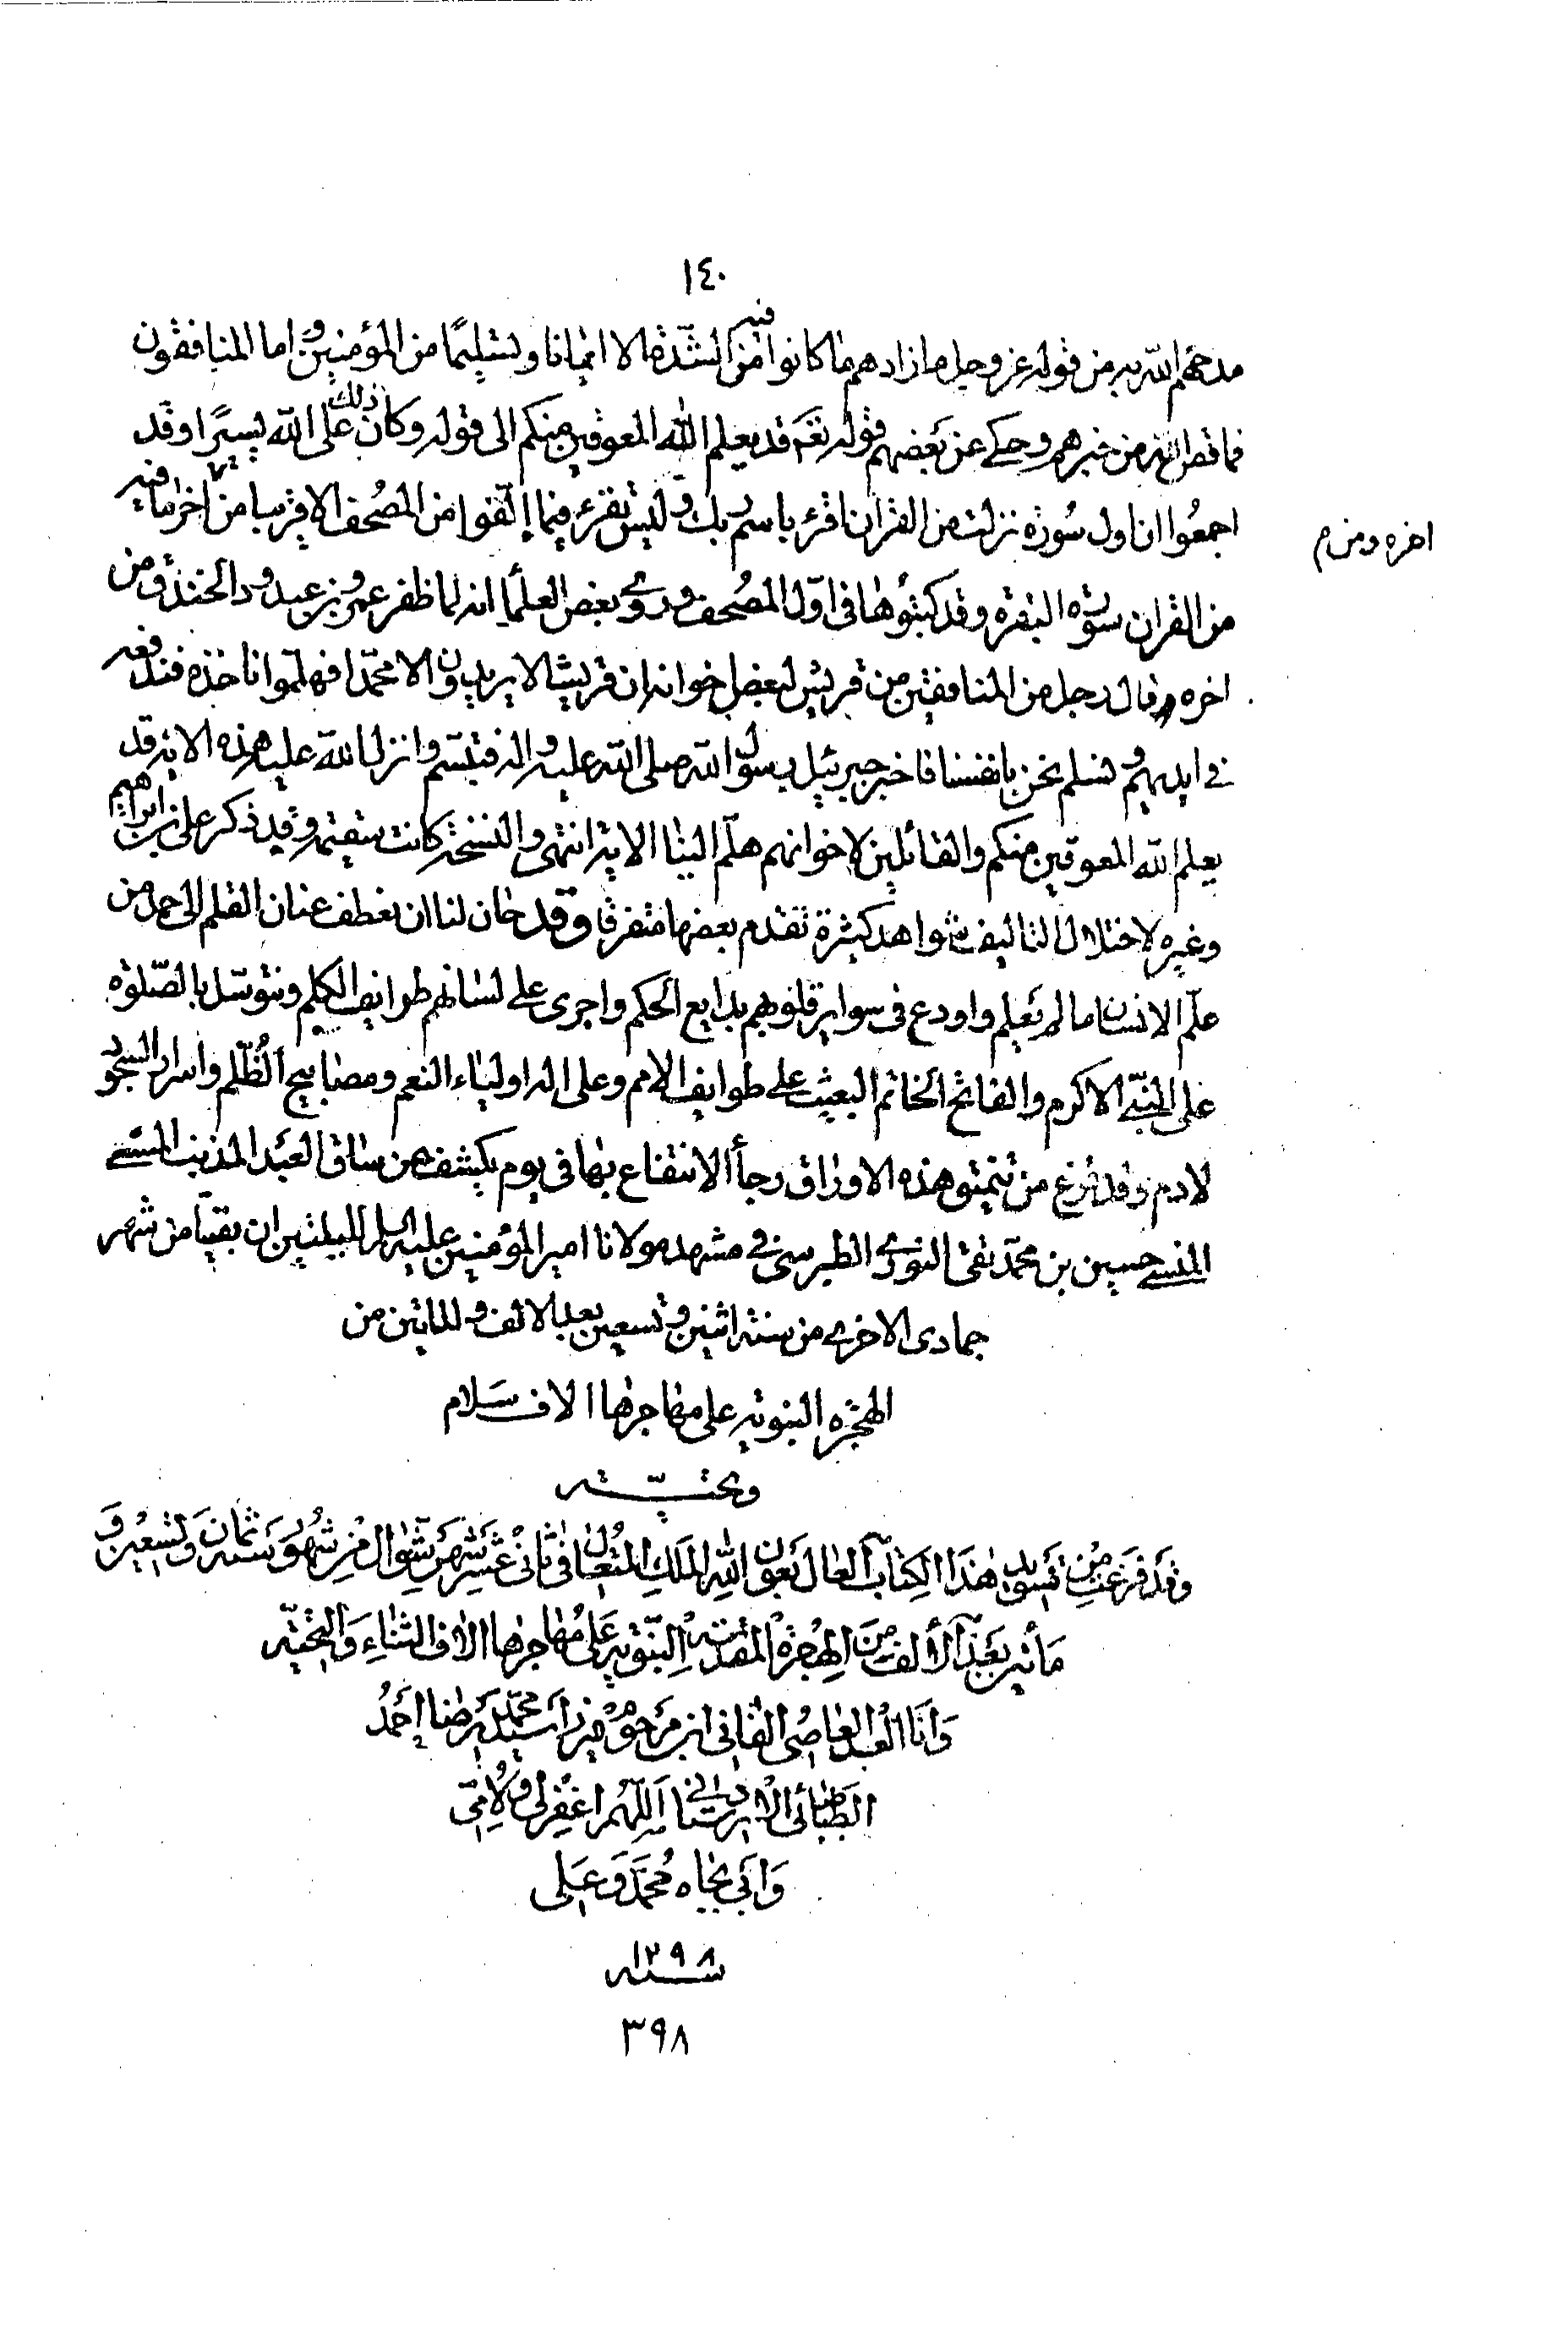 ١٤٠
مدحهم الله به من قوله عز وجل ما زادهم ما كانوا فيه من الشدة الا ايمانا وتسليما من المؤمنين واما المنافقون
فما قص الله من خبرهم وحكى عن بعضهم قوله تعم قد يعلم الله المعوقين منكم الى قوله وكان ذلك على الله يسيرا وقد
اجمعوا ان اول سورة نزلت من القران اقرء باسم ربك وليس تقرء فيما الفوا من المصحف الا قريبا من اخره ما فيه
اخره ومن م
من القران سورة البقرة وقد كتبوها في اول المصحف وروى بعض العلماء انه لما ظفر عمرو بن عبد ود الخندق من
اخره وقال رجل من المنافقين من قريش لبعض اخوانه ان قريشا لا يريدون الا محمدا فهلموا ناخذه فندفعه
في ايديهم ونسلم نحن بانفسنا فاخبر جبرئيل رسول الله صلى الله عليه واله فتبسم وانزل الله عليه هذه الاية قد
يعلم الله المعوقين منكم والقائلين لاخوانهم هلم الينا الاية انتهى والنسخة كانت سقيمة وقد ذكر على بن ابراهيم
وغيره لاختلال التاليف شواهد كثيرة تقدم بعضها متفرقا وقد حان لنا ان نعطف عنان القلم الى حمد من
علم الانسان ما لم يعلم واودع في سواير قلوبهم بدايع الحكم واجرى على لسانهم طرايف الكلم ونتوسل بالصلوة
على النبي الاكرم والفاتح الخاتم البعيث على طوايف الامم وعلى اله اولياء النعم ومصابيح الظلم واسرار السجود
لادم وقد فرغ من تنميق هذه الاوراق رجاء الانتفاع بها في يوم يكشف عن ساق العبد المذنب المسئ
المنسى حسين بن محمد تقى النورى الطبرسى في مشهد مولانا امير المؤمنين عليه السلم لليلتين ان بقيتا من شهر
جمادى الاخرى من سنة اثنين وتسعين بعد الالف والماتين من
الهجرة النبوية على مهاجرها الاف سلام
وتحيـــة
وقد فرغت من تسويد هذا الكتاب العال بعون الله الملك المتعال في ثاني عشر شهر شوال من شهور سنة ثمان وتسعين و
مأتين بعد الألف من الهجرة المقدسة النبوية على مهاجرها الاف الثناء والتحية
وانا العبد العاصى الفانى ابن مرحوم ميرزا سيد محمد رضا احمد
الطباطبائى الاردستانى اللهم اغفر لى ولامى
وابى بجاه محمد وعلى
سنة ١٢٩٨
٣٩٨